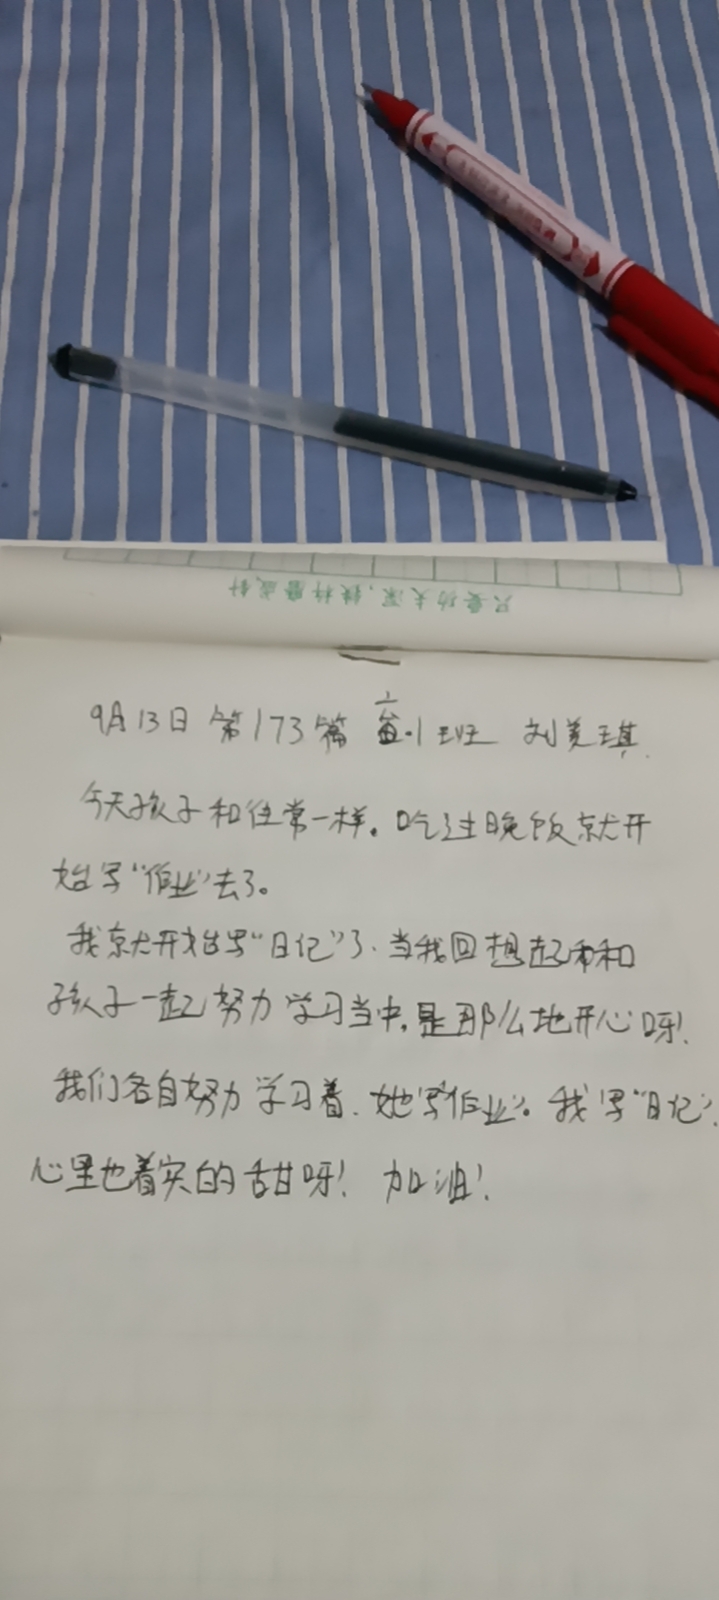 只要功夫深,铁杵磨成针
9月13日 第173篇 高.1班 刘美琪.
今天孩子和往常一样。吃过晚饭就开
始写“作业”去了。
我就开始写“日记”了.当我回想起和
孩子一起努力学习当中,是那么地开心呀!
我们各自努力学习着.她写“作业”。我写“日记”.
心里也着实的甜呀! 加油!